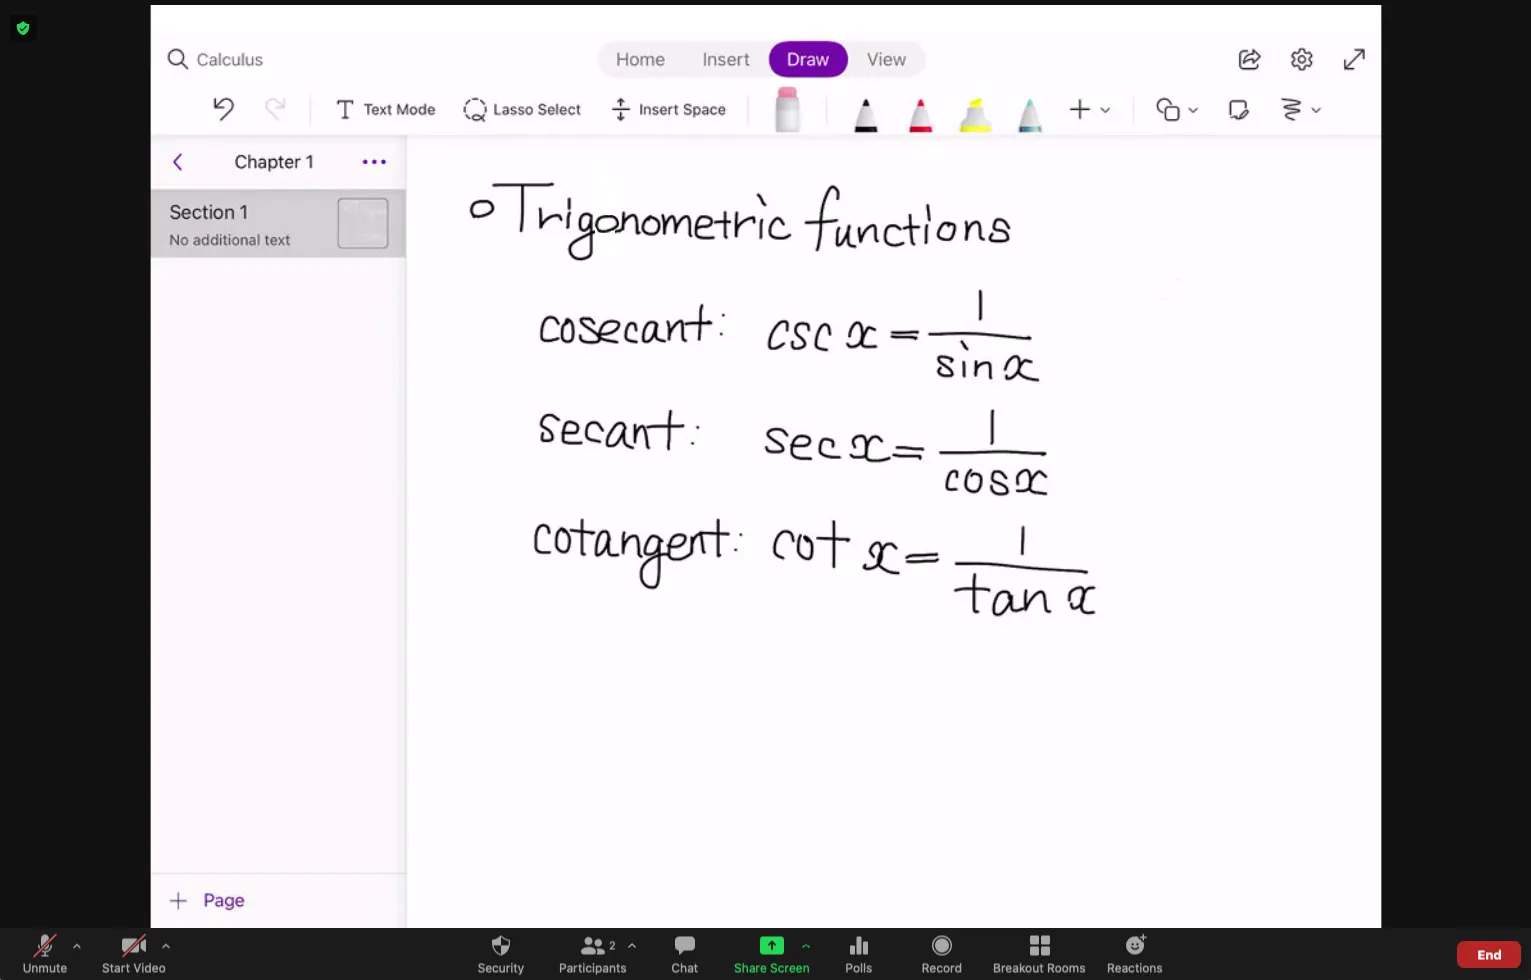 Calculus
Home Insert Draw View
Text Mode Lasso Select Insert Space
Chapter 1
Section 1
No additional text
Trigonometric functions
cosecant: csc x = 1/sin x
secant: sec x = 1/cos x
cotangent: cot x = 1/tan x
Page
Unmute Start Video Security Participants 2 Chat Share Screen Polls Record Breakout Rooms Reactions End